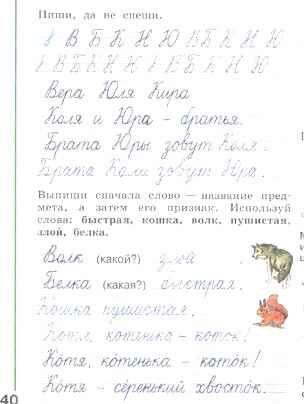 Пиши, да не спеши.
В Б К Н Ю В Б К Н Ю
В Б К Н Ю В Б К Н Ю
Вера Юля Кира
Коля и Юра – братья.
Брата Юры зовут Коля.
Брата Коли зовут Юра.
Выпиши сначала слово — название пред-
мета, а затем его признак. Используй
слова: быстрая, кошка, волк, пушистая,
злой, белка.
Волк (какой?) злой.
Белка (какая?) быстрая.
Кошка пушистая.
Котя, котенька – коток!
Котя, котенька – коток!
Котя – серенький хвосток.
40